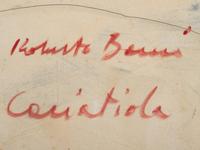 Roberto Benni
Cariatide